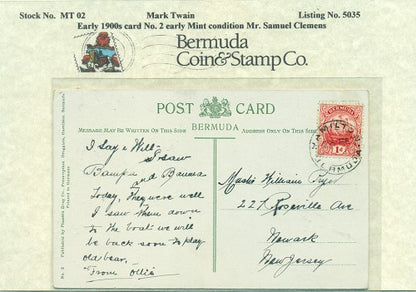 Stock No. MT 02 Mark Twain Listing No. 5035
Early 1900s card No. 2 early Mint condition Mr. Samuel Clemens
Bermuda
Coin & Stamp Co.
POST CARD
BERMUDA
MESSAGE MAY BE WRITTEN ON THIS SIDE
ADDRESS ONLY ON THIS SIDE
I Say & Will
I saw
Bampu and Bamma
Today, They were well
I saw them down
to the boat we will
be back soon to play
old bear,
From Ollie
Master William
227 Roseville Ave
Newark
New Jersey
BERMUDA
HAMILTON
BERMUDA
No. 2 Published by Phoenix Drug Store, Hamilton, Bermuda.